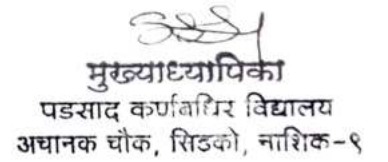 मुख्याध्यापिका
पडसाद कर्णबधिर विद्यालय
अचानक चौक, सिडको, नाशिक-९